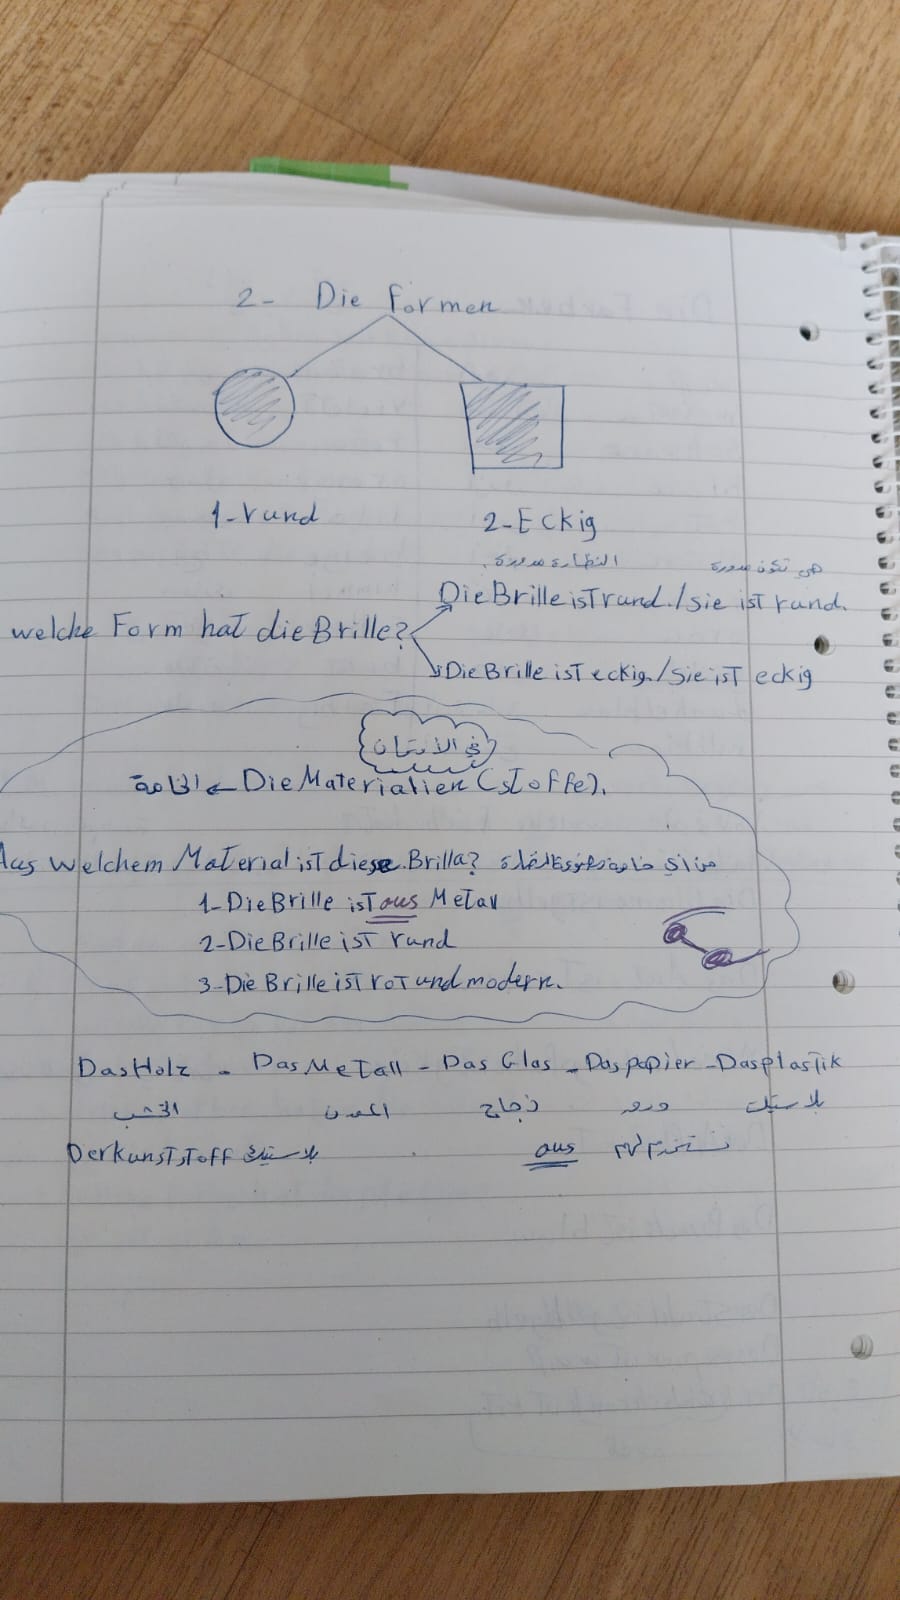 2- Die Formen
1-rund
2-Eckig
النظارة مدورة.
هي تكون مدورة
Die Brille ist rund./Sie ist rund.
welche Form hat die Brille?
Die Brille ist eckig./Sie ist eckig
في الأمتحان
الخامة ← Die Materialien (stoffe).
Aus welchem Material ist diese Brilla? من أي خامة النظارة
1-Die Brille ist aus Metal
2-Die Brille ist rund
3-Die Brille ist rot und modern.
Das Holz - Das Metall - Das Glas - Das papier - Das plastik
الخشب المعدن زجاج ورق بلاستيك
Der kunststoff بلاستيك aus نستخدم لهم